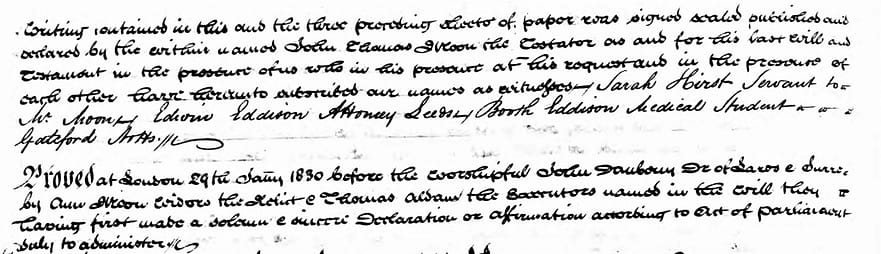 Writing contained in this and the three preceding sheets of paper was signed sealed published and
declared by the within named John Thomas Moon the Testator as and for his last Will and
Testament in the presence of us who in his presence at his request and in the presence of
each other have hereunto subscribed our names as witnesses, Sarah Hirst Servant to
Mr Moon, Edwin Eddison Attorney Leeds, Booth Eddison Medical Student
Gateford Notts.
Proved at London 29th Jany 1830 before the worshipful John Daubeny Dr of Laws & Surro-
by Ann Moon widow the Relict & Thomas Aldam the Executors named in the Will they
having first made a solemn & sincere Declaration or affirmation according to Act of Parliament
duly to administer